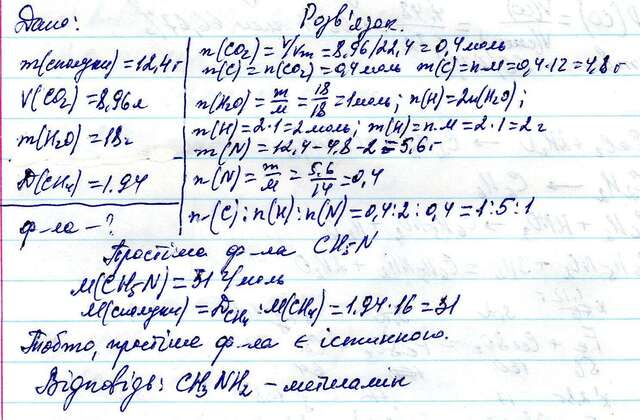 Дано:
m(сполуки)=12,4г
V(CO2)=8,96л
m(H2O)=18г
D(CH4)=1.94
ф-ла-?
Розв'язок.
n(CO2)=V/Vm=8,96/22,4=0,4моль
n(C)=n(CO2)=0,4моль m(C)=n.м=0,4·12=4,8г
n(H2O)=m/M=18/18=1моль; n(H)=2n(H2O);
n(H)=2·1=2моль; m(H)=n.м=2·1=2г
m(N)=12,4-4,8-2=5,6г
n(N)=m/M=5,6/14=0,4
n(C):n(H):n(N)=0,4:2:0,4=1:5:1
Простіша ф-ла CH5N
M(CH5N)=31 г/моль
M(сполуки)=DCH4·M(CH4)=1.94·16=31
Тобто, простіша ф-ла є істинною.
Відповідь: CH3NH2-метиламін